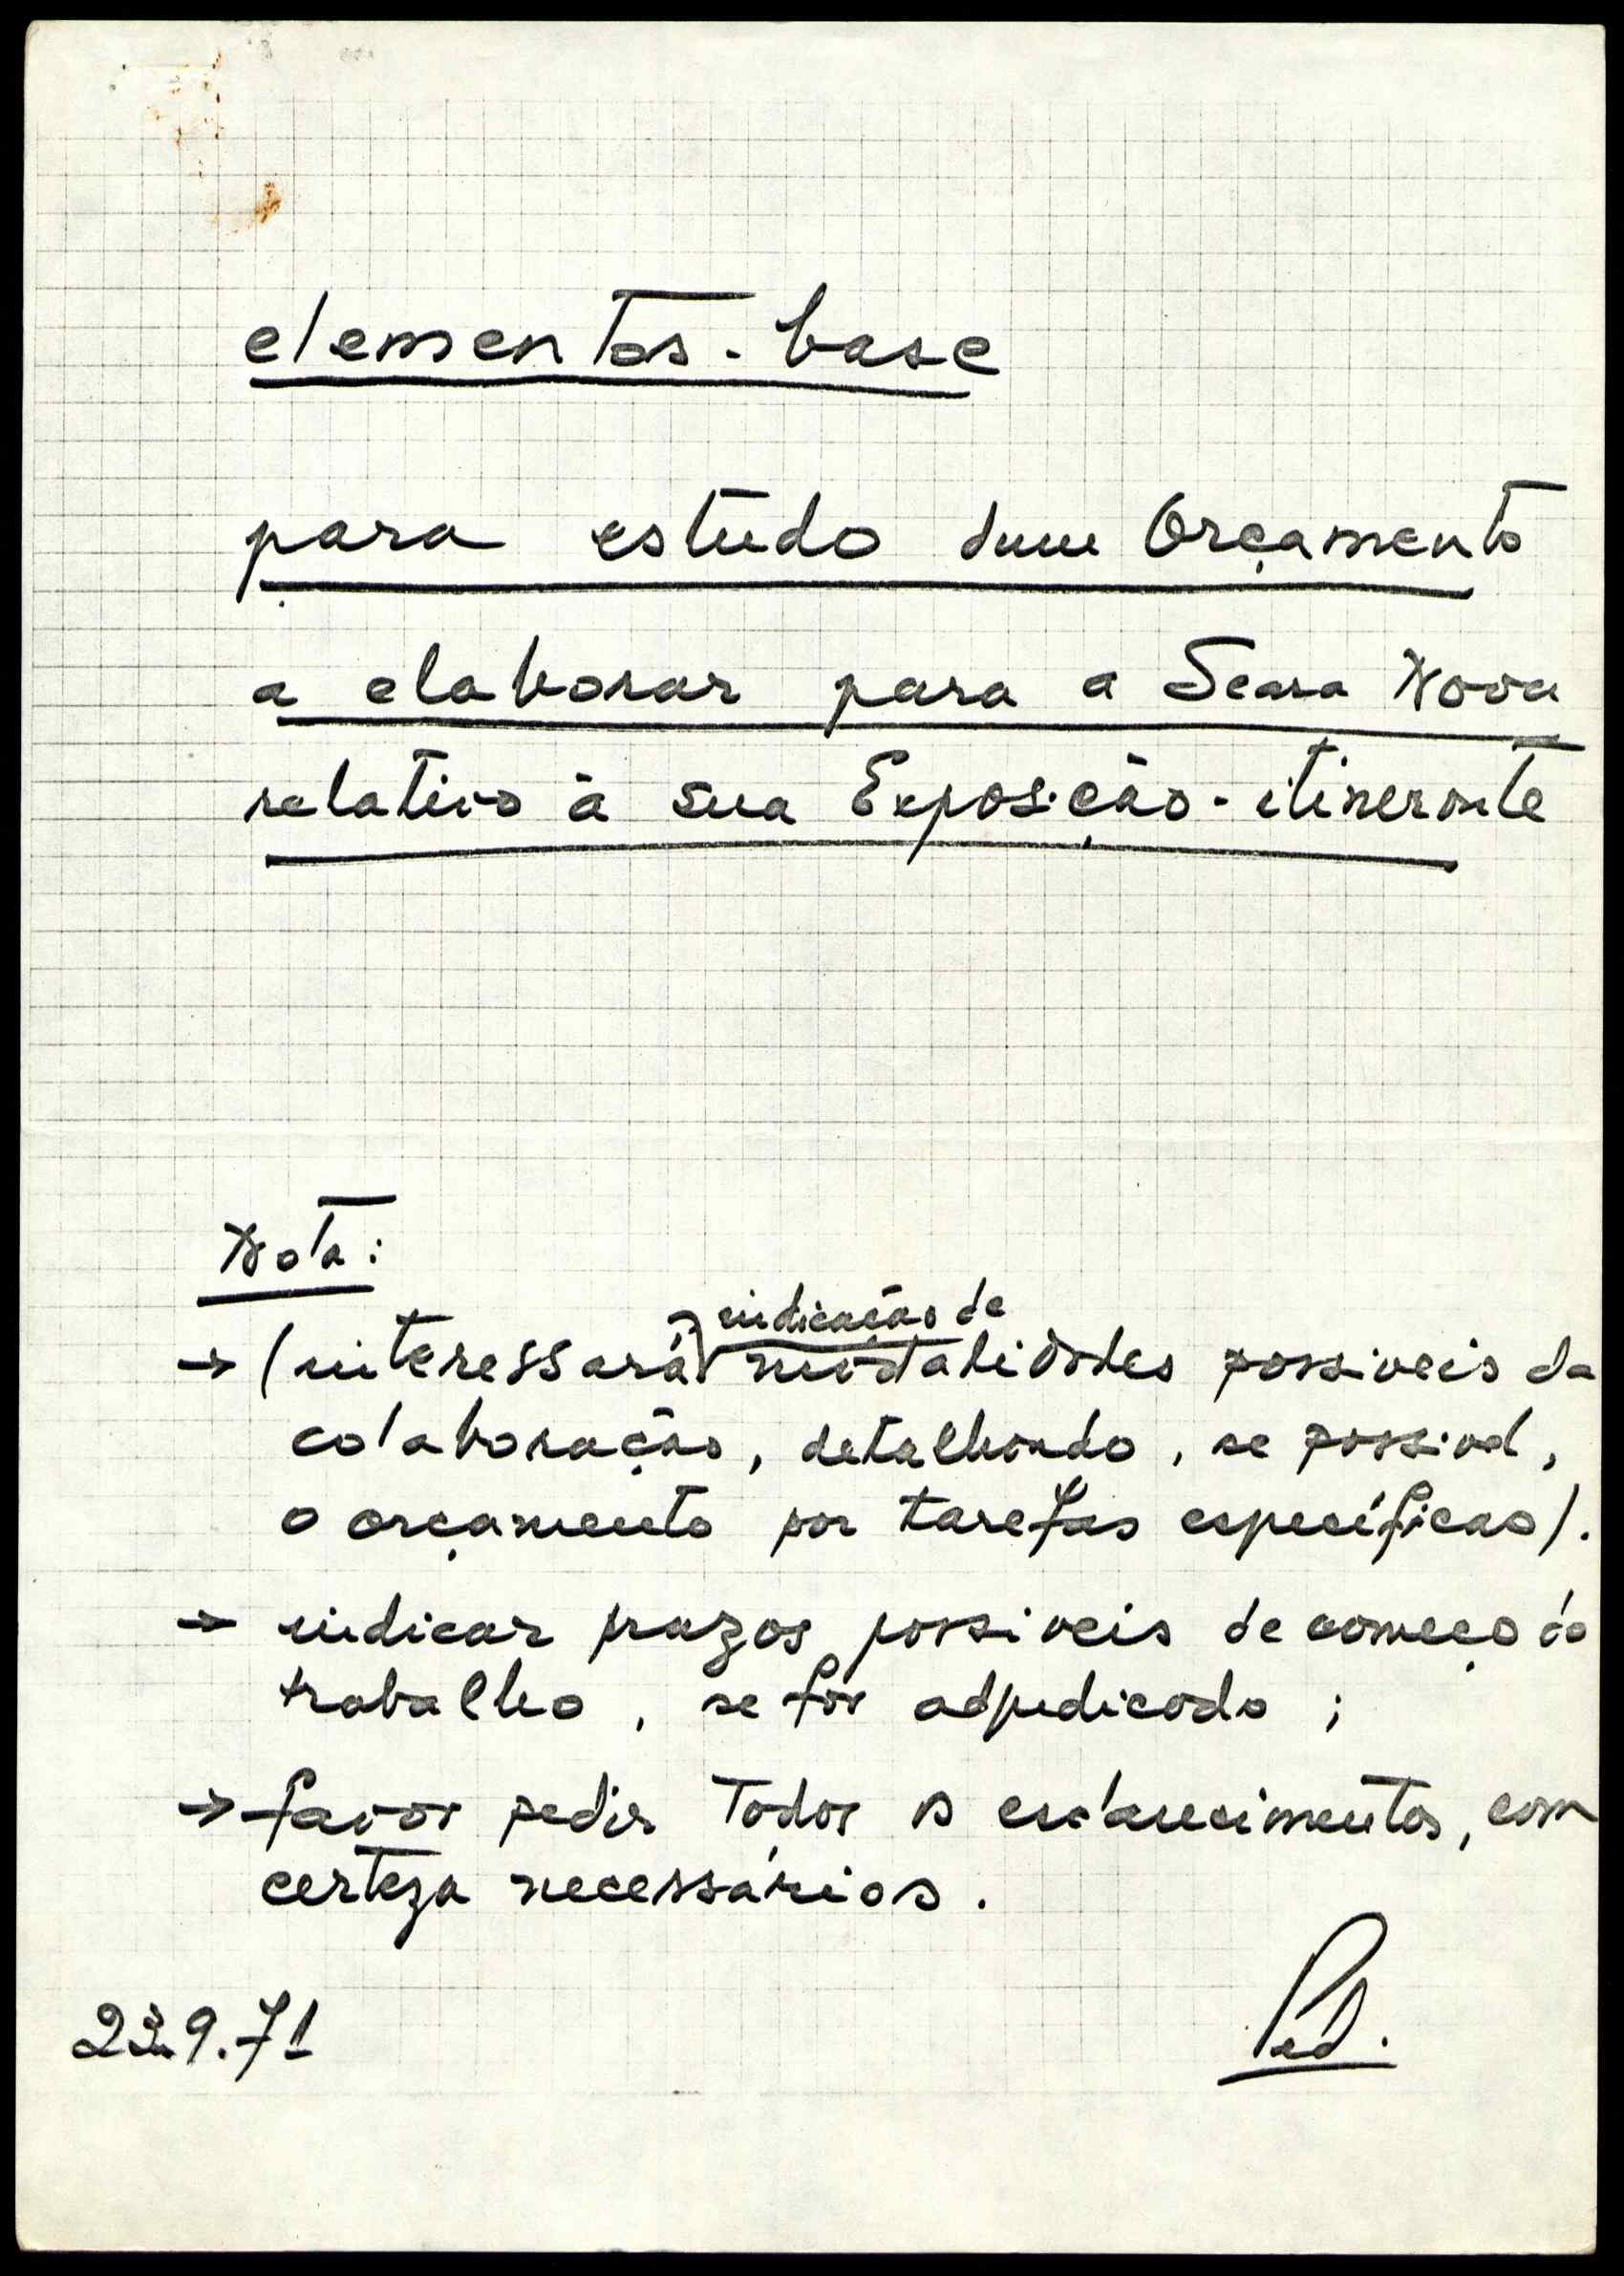 elementos-base
para estudo dum Orçamento
a elaborar para a Seara Nova
relativo à sua Exposição-itinerante
Nota:
indicação de
→ (interessará modalidades possiveis da
colaboração, detalhando, se possivel,
o orçamento por tarefas específicas).
→ indicar prazos possiveis de começo do
trabalho, se fôr adjudicado;
→ favor pedir todos os esclarecimentos, com
certeza necessários.
9.71